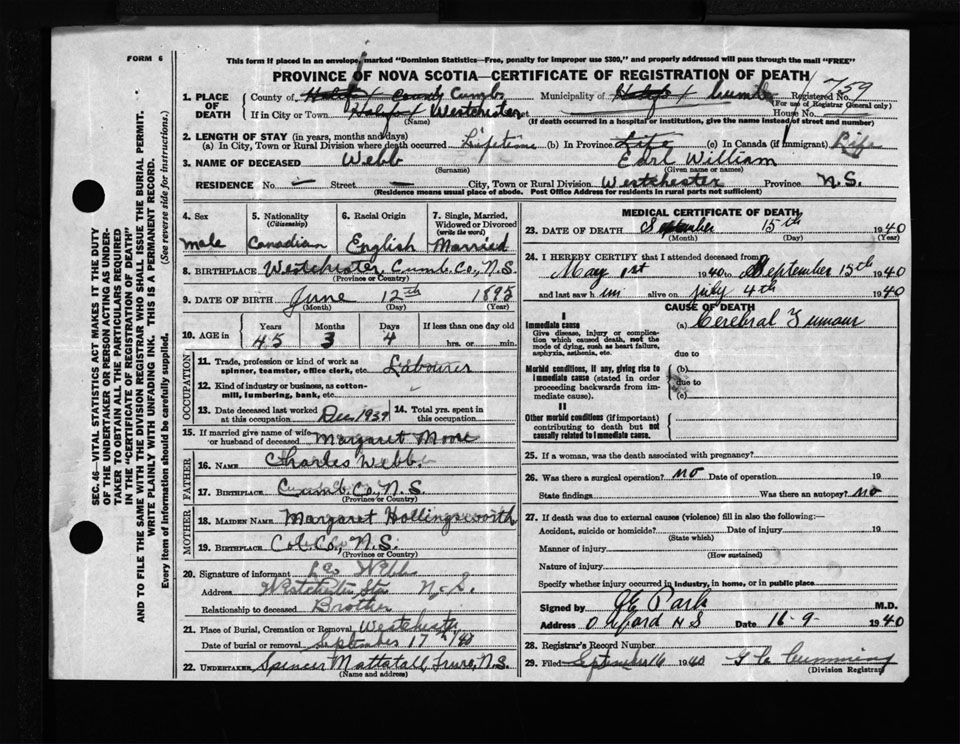 FORM 6
This form if placed in an envelope marked "Dominion Statistics—Free, penalty for improper use $300," and properly addressed will pass through the mail "FREE"
PROVINCE OF NOVA SCOTIA—CERTIFICATE OF REGISTRATION OF DEATH
SEC. 46—VITAL STATISTICS ACT MAKES IT THE DUTY
OF THE UNDERTAKER OR PERSON ACTING AS UNDER-
TAKER TO OBTAIN ALL THE PARTICULARS REQUIRED
IN THE "CERTIFICATE OF REGISTRATION OF DEATH"
AND TO FILE THE SAME WITH THE DIVISION REGISTRAR WHO SHALL ISSUE THE BURIAL PERMIT.
WRITE PLAINLY WITH UNFADING INK. THIS IS A PERMANENT RECORD.
Every item of information should be carefully supplied. (See reverse side for instructions.)
1. PLACE OF DEATH County of Halifax County Cumb. Municipality of Halifax Cumb Registered No. 759
(For use of Registrar General only)
If in City or Town Halifax Westchester Street House No.
(Name) (If death occurred in a hospital or institution, give the name instead of street and number)
2. LENGTH OF STAY (in years, months and days)
(a) In City, Town or Rural Division where death occurred Lifetime (b) In Province Life (c) In Canada (if immigrant) Life
3. NAME OF DECEASED Webb Earl William
(Surname) (Given name or names)
RESIDENCE No. — Street — City, Town or Rural Division Westchester Province N.S.
(Residence means usual place of abode. Post Office Address for residents in rural parts not sufficient)
4. Sex 5. Nationality (Citizenship) 6. Racial Origin 7. Single, Married, Widowed or Divorced (write the word)
male Canadian English Married
8. BIRTHPLACE Westchester, Cumb. Co., N.S.
(Province or Country)
9. DATE OF BIRTH June 12th 1895
(Month) (Day) (Year)
10. AGE in Years Months Days If less than one day old
45 3 4 hrs. or min.
OCCUPATION
11. Trade, profession or kind of work as spinner, teamster, office clerk, etc. Labourer
12. Kind of industry or business, as cotton-mill, lumbering, bank, etc.
13. Date deceased last worked at this occupation Dec 1939 14. Total yrs. spent in this occupation
15. If married give name of wife or husband of deceased Margaret Moore
FATHER
16. NAME Charles Webb
17. BIRTHPLACE Cumb. Co., N.S.
(Province or Country)
MOTHER
18. MAIDEN NAME Margaret Hollingsworth
19. BIRTHPLACE Col. Co., N.S.
(Province or Country)
20. Signature of informant Webb
Address Westchester Sta. N.S.
Relationship to deceased Brother
21. Place of Burial, Cremation or Removal Westchester
Date of burial or removal September 17th
22. UNDERTAKER Spencer Mattatall, Truro, N.S.
(Name and address)
MEDICAL CERTIFICATE OF DEATH
23. DATE OF DEATH September 15th 1940
(Month) (Day) (Year)
24. I HEREBY CERTIFY that I attended deceased from
May 1st 1940 to September 15th 1940
and last saw him alive on July 4th 1940
CAUSE OF DEATH
I
Immediate cause
Give disease, injury or complication which caused death, not the mode of dying, such as heart failure, asphyxia, asthenia, etc.
(a) Cerebral Tumour
due to
Morbid conditions, if any, giving rise to immediate cause (stated in order proceeding backwards from immediate cause).
(b)
due to
(c)
II
Other morbid conditions (if important) contributing to death but not causally related to immediate cause.
25. If a woman, was the death associated with pregnancy?
26. Was there a surgical operation? no Date of operation 19
State findings Was there an autopsy? no
27. If death was due to external causes (violence) fill in also the following:—
Accident, suicide or homicide? Date of injury 19
(State which)
Manner of injury
(How sustained)
Nature of injury
Specify whether injury occurred in industry, in home, or in public place
Signed by Park M.D.
Address Oxford N S Date 16-9- 1940
28. Registrar's Record Number
29. Filed September 16 1940 Cumming
(Division Registrar)